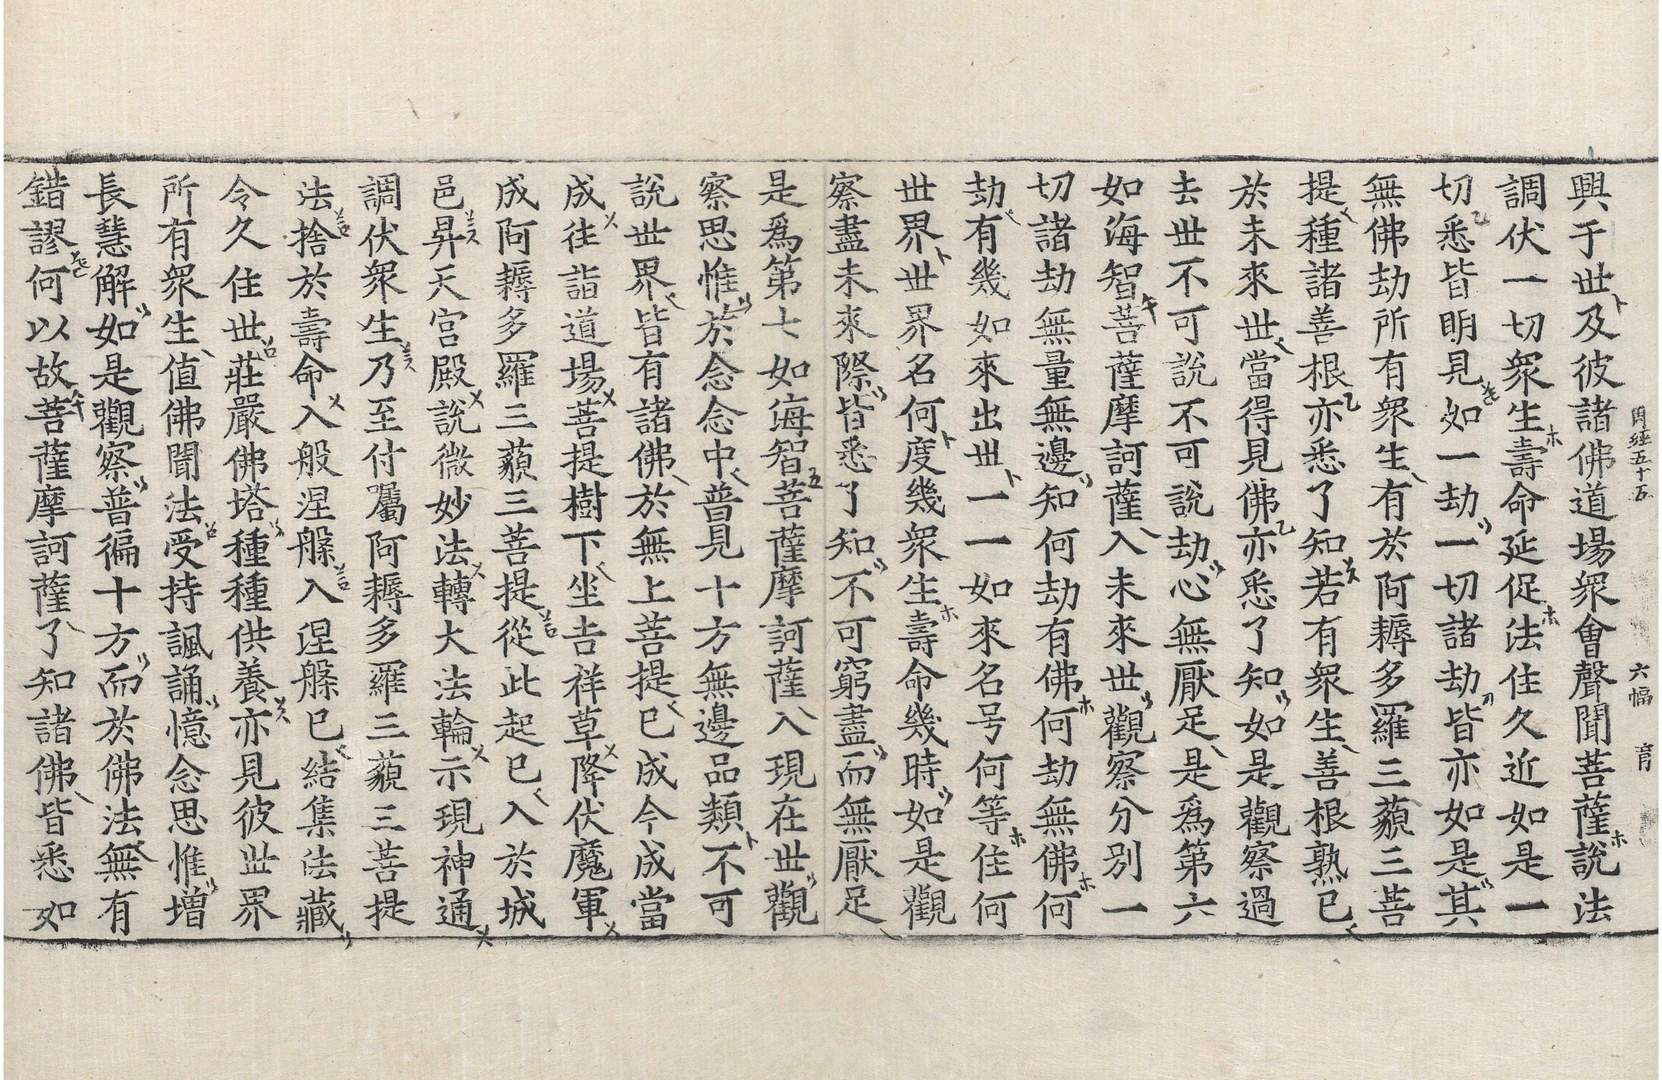 周経五十五　六幅　育
興于世及彼諸佛道場衆會聲聞菩薩說法
調伏一切衆生壽命延促法住久近如是一
切悉皆明見如一劫一切諸劫皆亦如是其
無佛劫所有衆生有於阿耨多羅三藐三菩
提種諸善根亦悉了知若有衆生善根熟已
於未來世當得見佛亦悉了知如是觀察過
去世不可說不可說劫心無厭足是爲第六
如海智菩薩摩訶薩入未來世觀察分別一
切諸劫無量無邊知何劫有佛何劫無佛何
劫有幾如來出世一一如來名号何等住何
世界世界名何度幾衆生壽命幾時如是觀
察盡未來際皆悉了知不可窮盡而無厭足
是爲第七如海智菩薩摩訶薩入現在世觀
察思惟於念念中普見十方無邊品類不可
說世界皆有諸佛於無上菩提已成今成當
成往詣道場菩提樹下坐吉祥草降伏魔軍
成阿耨多羅三藐三菩提從此起已入於城
邑昇天宮殿說微妙法轉大法輪示現神通
調伏衆生乃至付囑阿耨多羅三藐三菩提
法捨於壽命入般涅槃入涅槃已結集法藏
令久住世莊嚴佛塔種種供養亦見彼世界
所有衆生值佛聞法受持諷誦憶念思惟增
長慧解如是觀察普徧十方而於佛法無有
錯謬何以故菩薩摩訶薩了知諸佛皆悉如